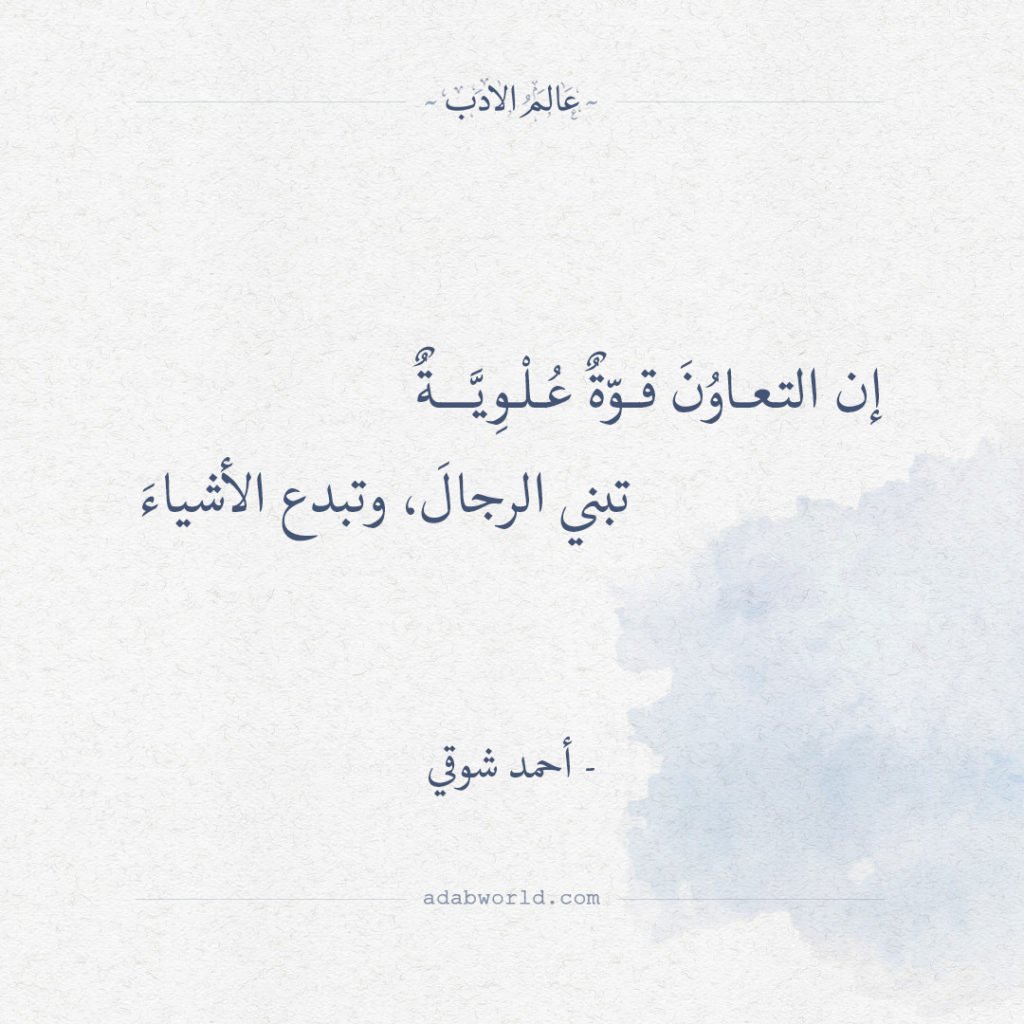 ~ عَالَمُ الأدَب ~
إن التعـاوُنَ قـوّةٌ عُـلْـوِيَّـــةٌ
تبني الرجالَ، وتبدع الأشياءَ
- أحمد شوقي
adabworld.com